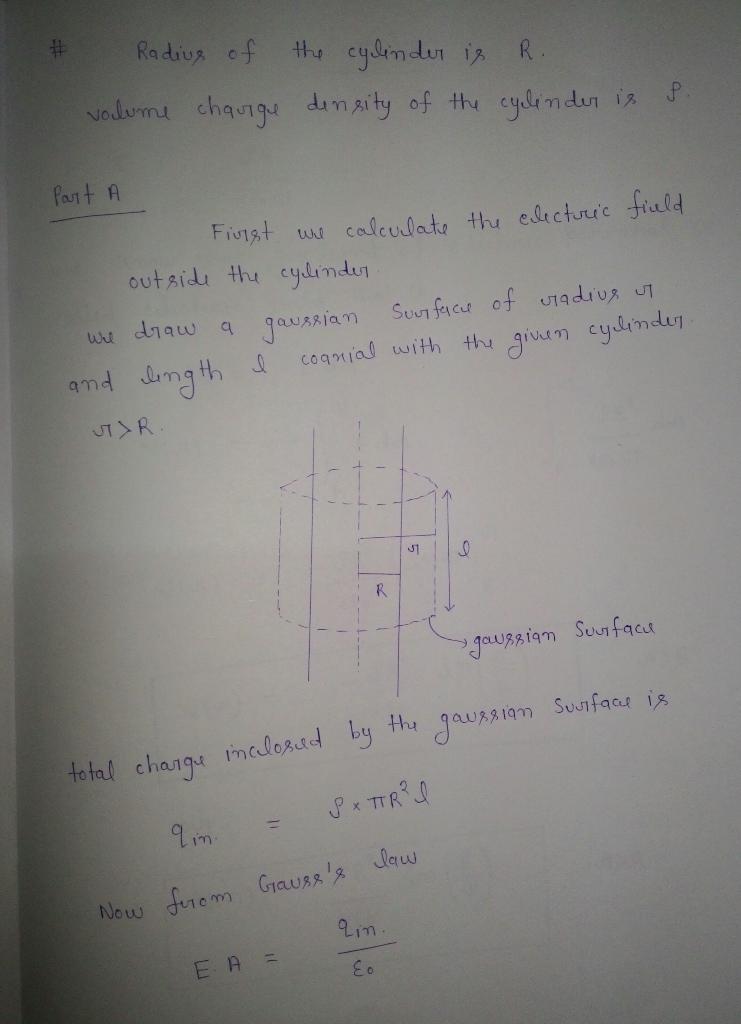 # Radius of the cylinder is R.
volume charge density of the cylinder is ρ.
Part A
First we calculate the electric field
outside the cylinder.
we draw a gaussian surface of radius r
and length l coaxial with the given cylinder.
r>R.
r
l
R
gaussian surface
total charge inclosed by the gaussian surface is
q in. = ρ × πR² l
Now from Gauss's law
E. A = q in. / ε₀